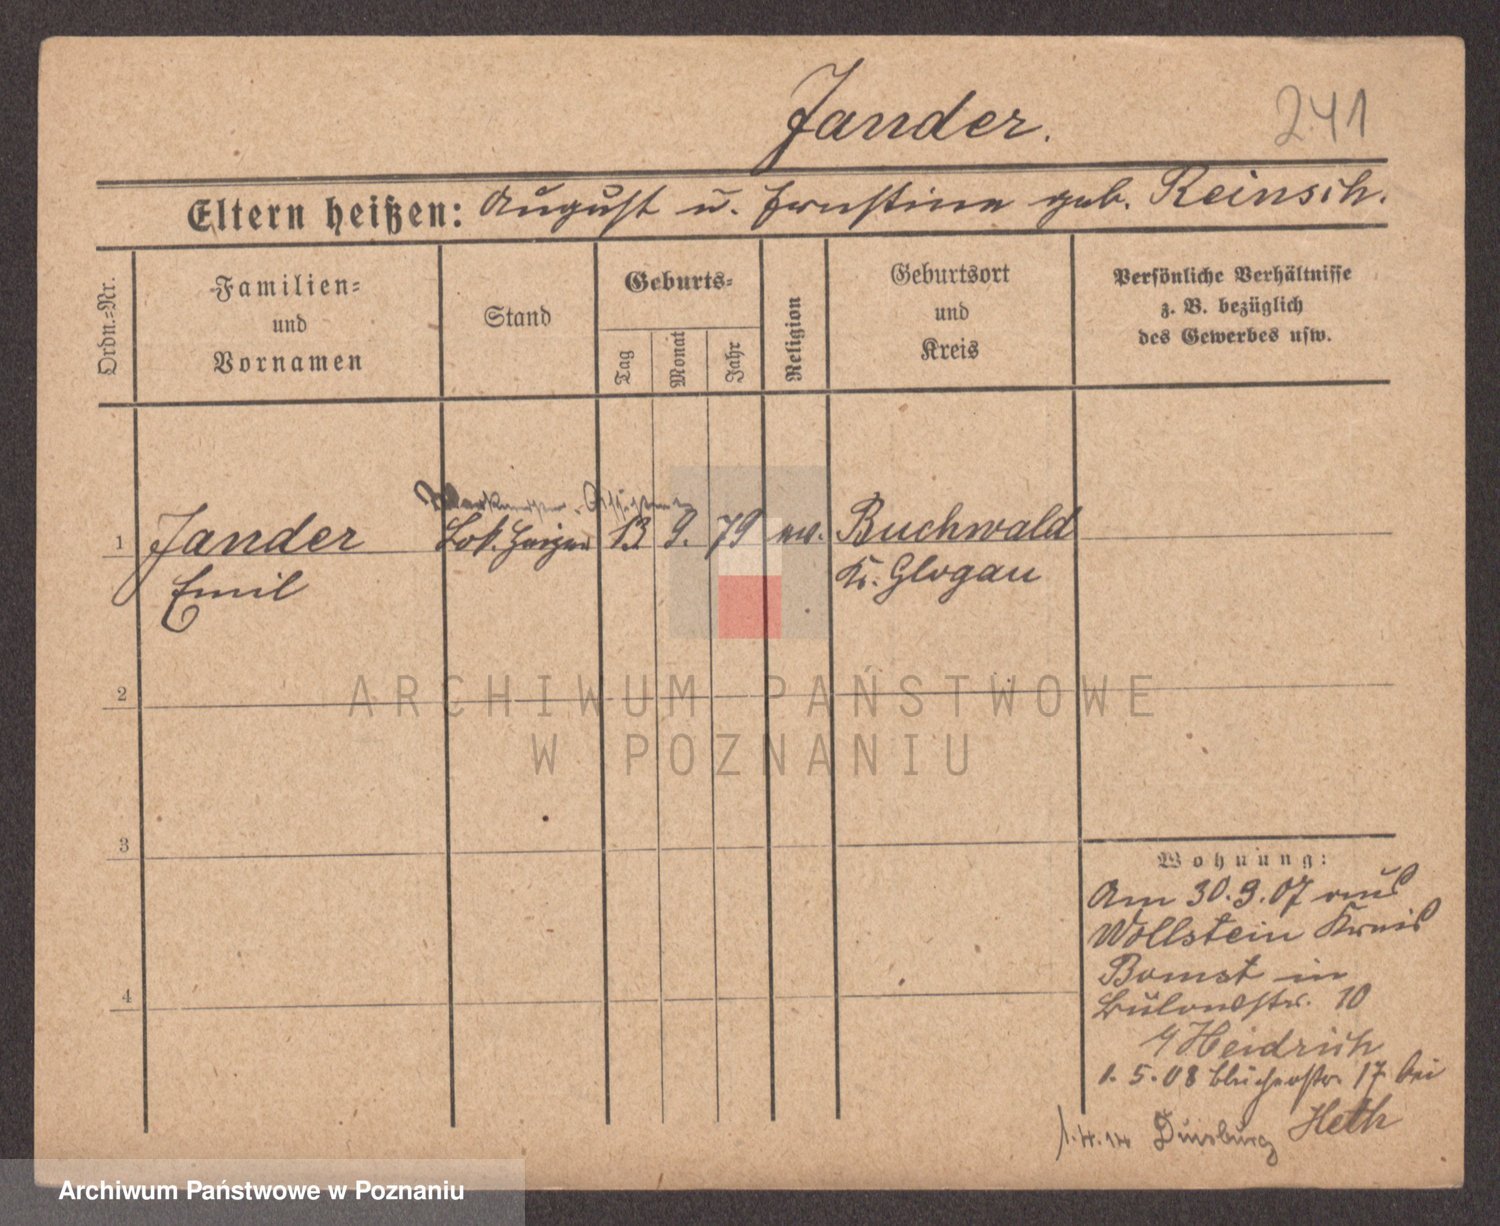 Jander.
241
Eltern heißen: August u. Ernstine geb. Reinsch.
Ordn.-Nr.
Familien-
und
Vornamen
Stand
Geburts-
Tag
Monat
Jahr
Religion
Geburtsort
und
Kreis
Persönliche Verhältnisse
z. B. bezüglich
des Gewerbes usw.
1 Jander Lok. Heizer 13 9. 79 ev. Buchwald
Emil Kr. Glogau
2
3
4
Wohnung:
Am 30.9.07 aus
Wollstein Kreis
Bomst in
Bülowstr. 10
Heidrich
1.5.08 Blücherstr. 17 bei
Heth
1.4.14 Duisburg
ARCHIWUM PAŃSTWOWE
W POZNANIU
Archiwum Państwowe w Poznaniu